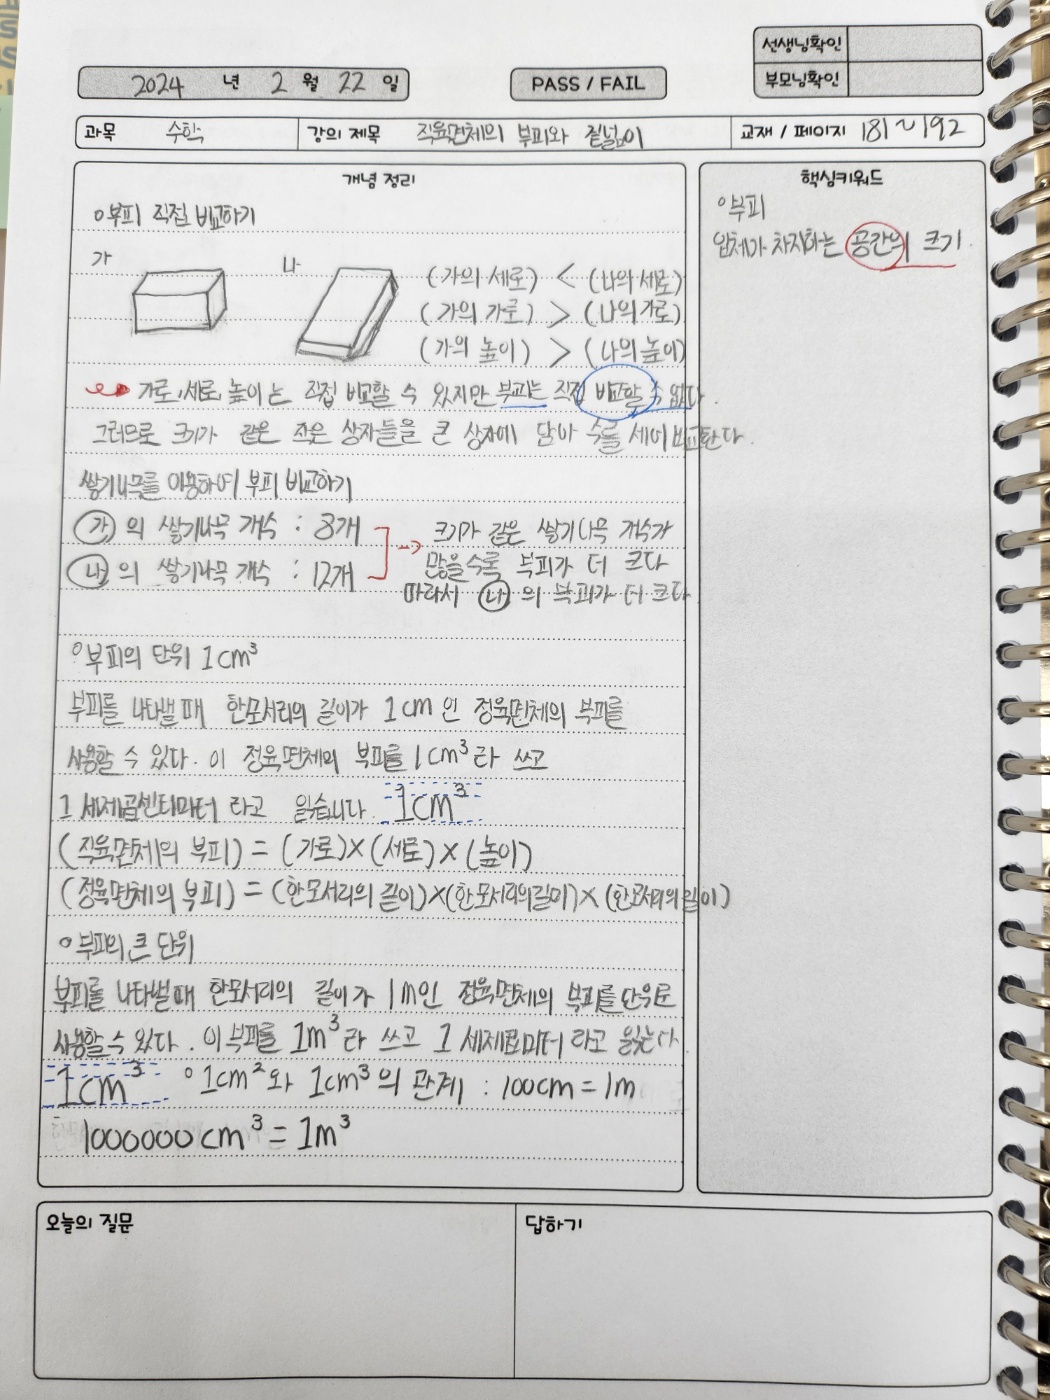 선생님확인
부모님확인
2024 년 2 월 22 일
PASS / FAIL
과목 수학 강의 제목 직육면체의 부피와 겉넓이 교재 / 페이지 181~192
개념 정리
○부피 직접 비교하기
가 나
(가의 세로) < (나의 세로)
(가의 가로) > (나의 가로)
(가의 높이) > (나의 높이)
가로, 세로, 높이는 직접 비교할 수 있지만 부피는 직접 비교할 수 없다.
그러므로 크기가 같은 작은 상자들을 큰 상자에 담아 수를 세어 비교한다.
쌓기나무를 이용하여 부피 비교하기
가의 쌓기나무 개수 : 8개
나의 쌓기나무 개수 : 12개
→ 크기가 같은 쌓기나무 개수가
많을수록 부피가 더 크다
따라서 나의 부피가 더 크다
○부피의 단위 1cm³
부피를 나타낼 때 한모서리의 길이가 1cm인 정육면체의 부피를
사용할 수 있다. 이 정육면체의 부피를 1cm³라 쓰고
1 세제곱센티미터 라고 읽습니다. 1cm³
(직육면체의 부피) = (가로)×(세로)×(높이)
(정육면체의 부피) = (한모서리의 길이)×(한모서리의길이)×(한모서리의 길이)
○부피의 큰 단위
부피를 나타낼 때 한모서리의 길이가 1m인 정육면체의 부피를 단위로
사용할 수 있다. 이 부피를 1m³라 쓰고 1 세제곱미터 라고 읽는다.
1cm³ ○1cm²와 1cm³의 관계 : 100cm = 1m
1000000cm³ = 1m³
핵심키워드
○부피
입체가 차지하는 공간의 크기.
오늘의 질문
답하기